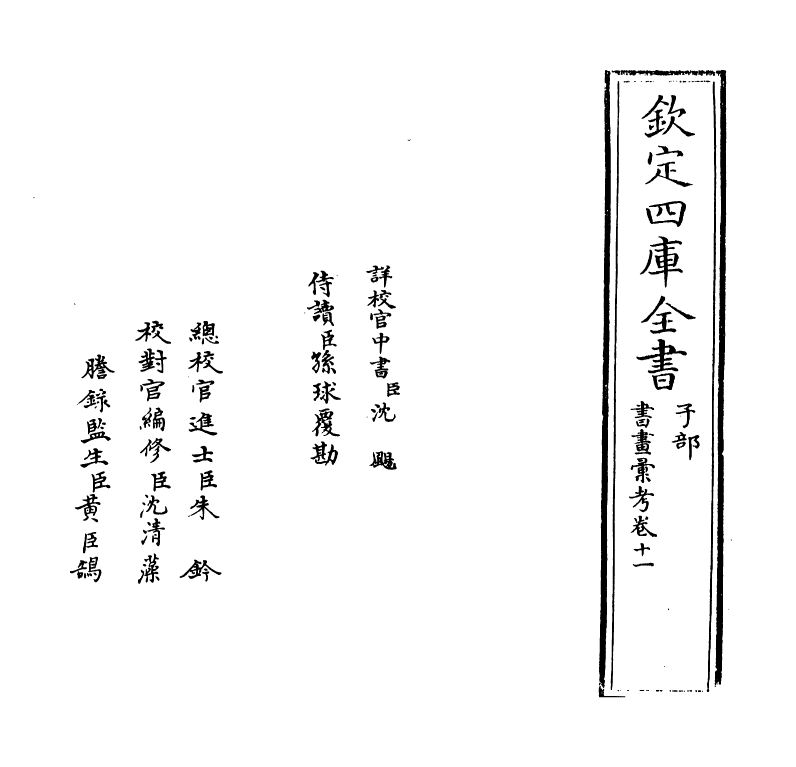 欽定四庫全書
子部
書畫彙考卷十一
詳校官中書臣沈颺
侍讀臣孫球覆勘
總校官進士臣朱鈐
校對官編修臣沈清藻
謄錄監生臣黃臣鵠